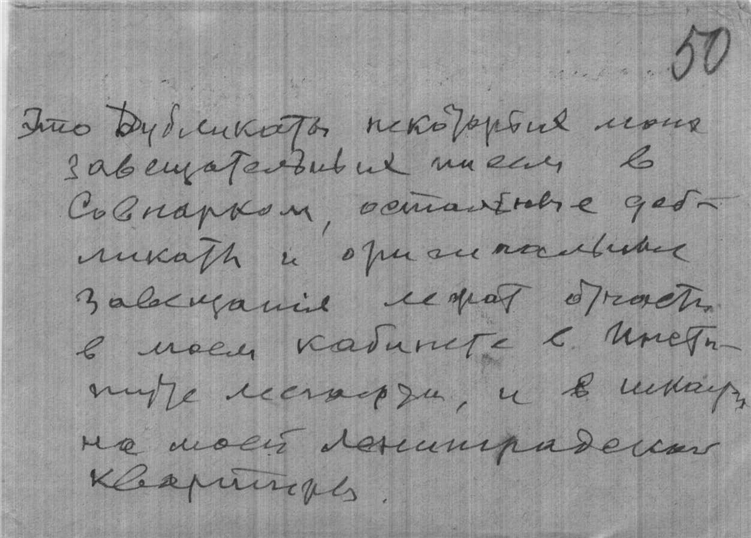 50
Это Дубликаты некоторых моих
завещательных писем в
Совнарком, остальные дуб-
ликаты и оригинальные
завещания лежат отчасти
в моем кабинете в Инсти-
туте, и в шкафу
на моей Ленинградской
квартире.